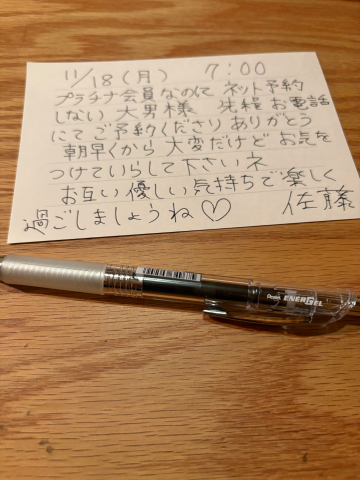 11/18(月) 7:00
プラチナ会員なのに ネット予約
しない 大男様 先程 お電話
にて ご予約くださり ありがとう
朝早くから 大変だけど お気を
つけていらして下さいネ
お互い優しい気持ちで楽しく
過ごしましょうね♡ 佐藤
Pentel ENERGEL